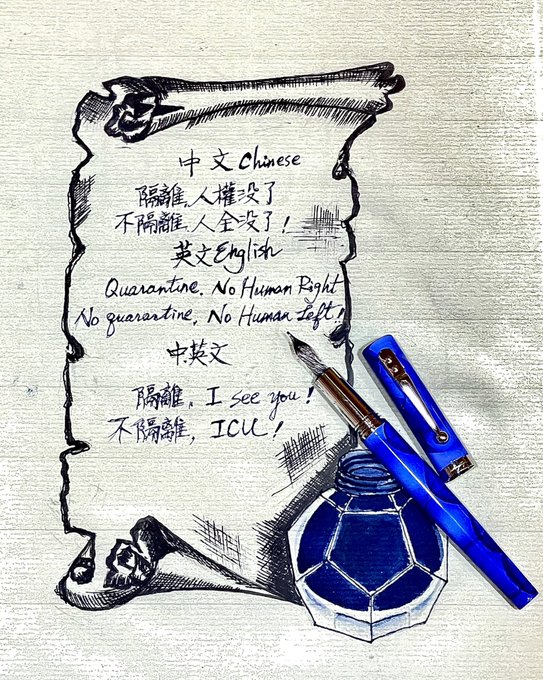 中文 Chinese
隔離，人權没了
不隔離，人全没了！
英文 English
Quarantine, No Human Right
No quarantine, No Human Left!
中英文
隔離，I see you!
不隔離，ICU!